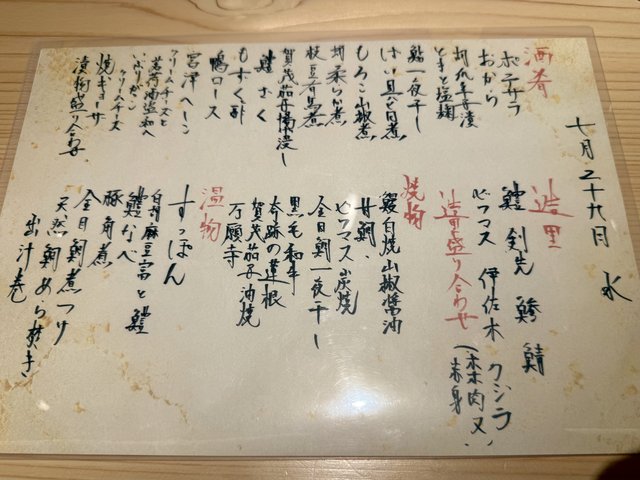 七月三十九日 水
酒肴
ポテサラ
おから
胡瓜辛子漬
とまと塩麹
鮎一夜干し
ばい貝旨煮
もろこ山椒煮
蛸柔らか煮
枝豆有馬煮
賀茂茄子揚浸し
鱧ざく
もずく酢
鴨ロース
宮津へしこ
クリームチーズと
いぶりがっこ
クリームチーズ
焼ギョーザ
漬物盛り合わせ
造里
鱧 剣先 鯵 鯖
ビワマス 伊佐木 クジラ
造里盛り合わせ
焼物
鰻白焼山椒醤油
甘鯛、
ビワマス炭焼
金目鯛一夜干し
黒毛和牛
奇跡の蓮根
賀茂茄子油焼
万願寺
温物
すっぽん
白胡麻豆富と鱧
鱧なべ
豚角煮
金目鯛煮つけ
天然鯛あら焚き
出汁巻